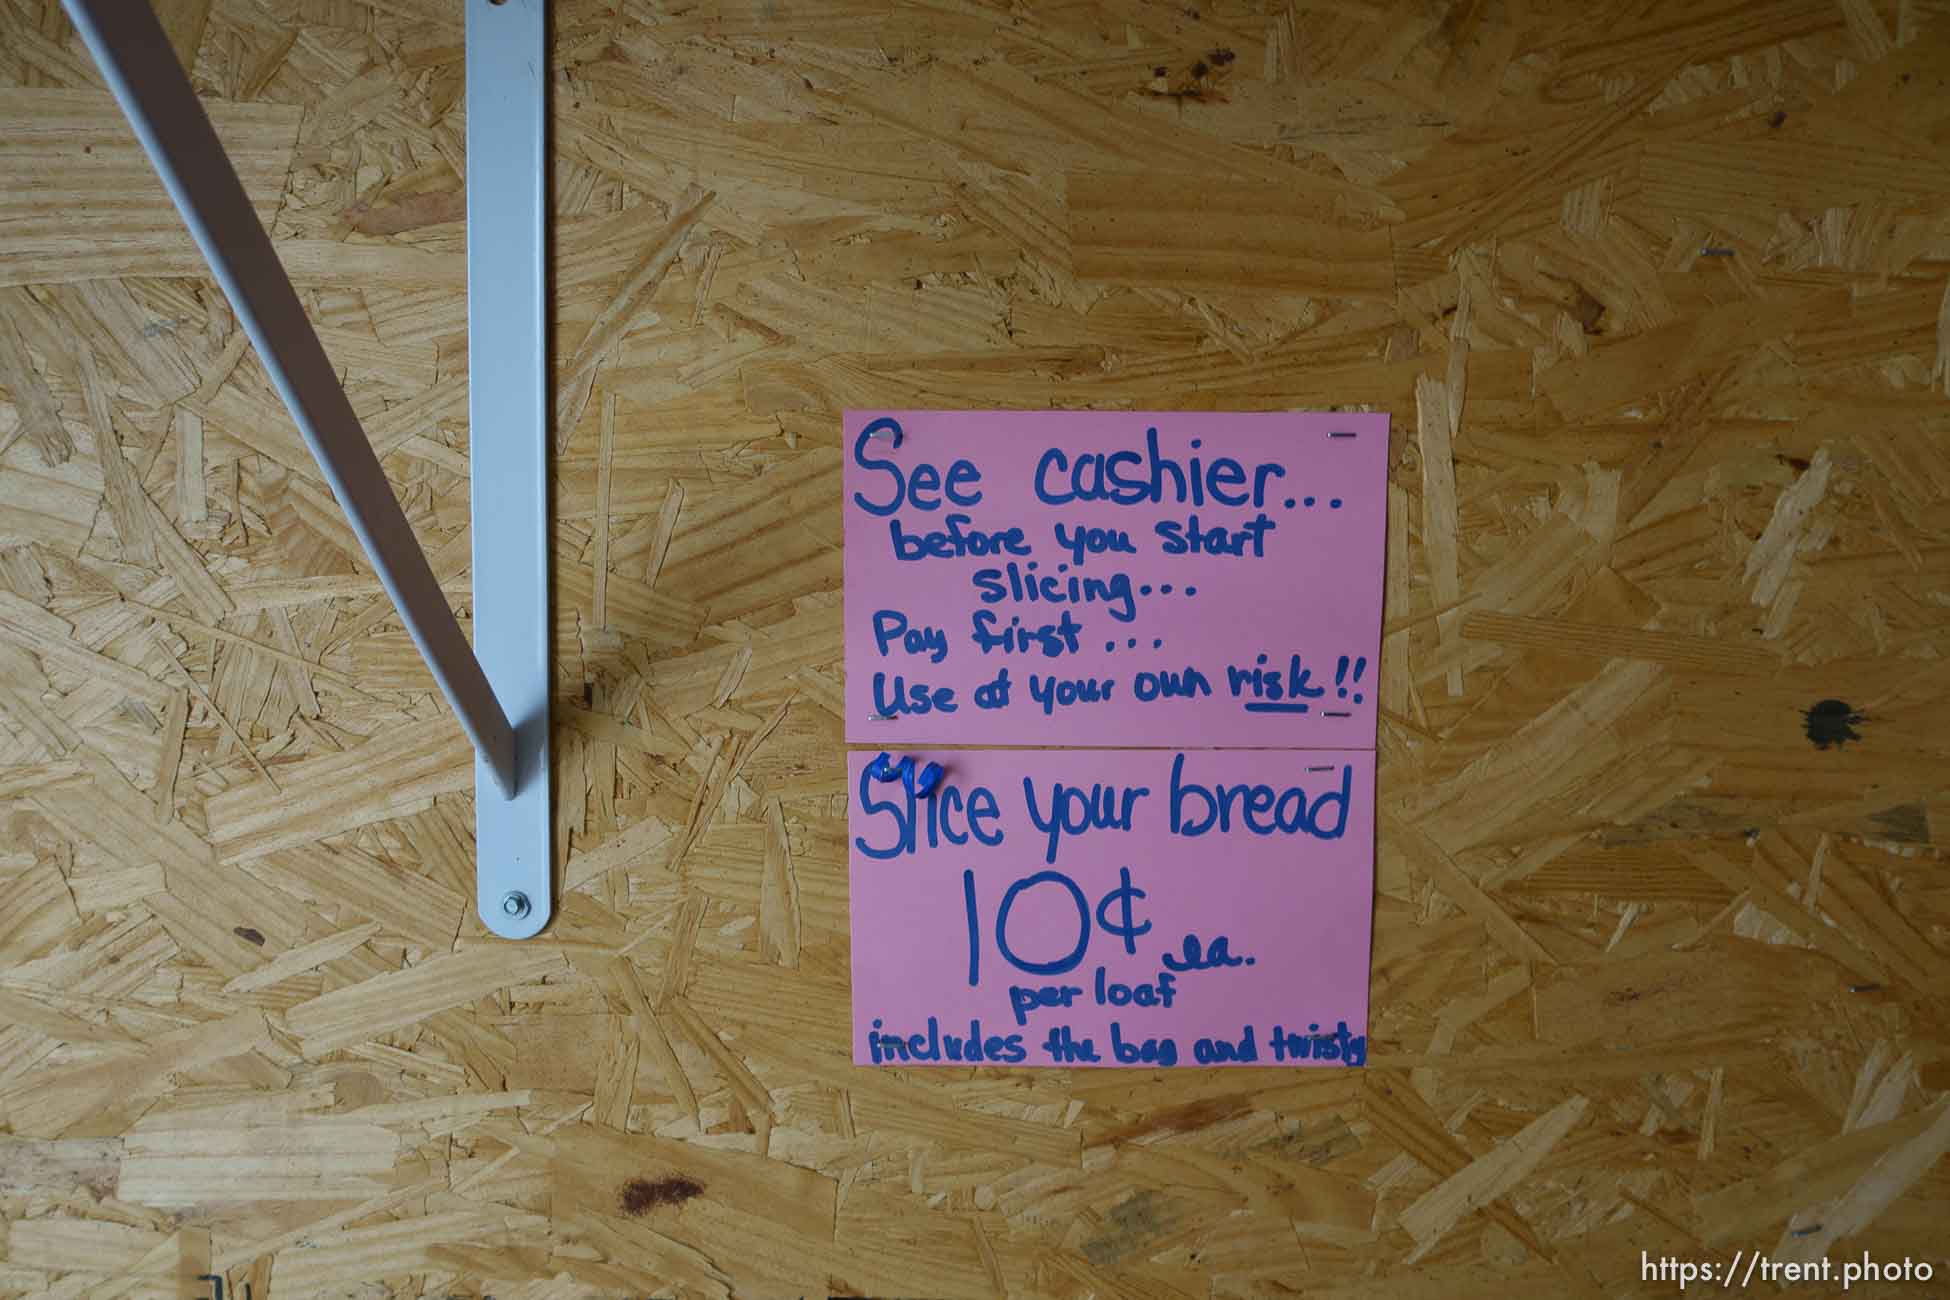 See cashier...
before you start
slicing...
Pay first...
Use at your own risk!!
Slice your bread
10¢ ea.
per loaf
includes the bag and twisty
https://trent.photo